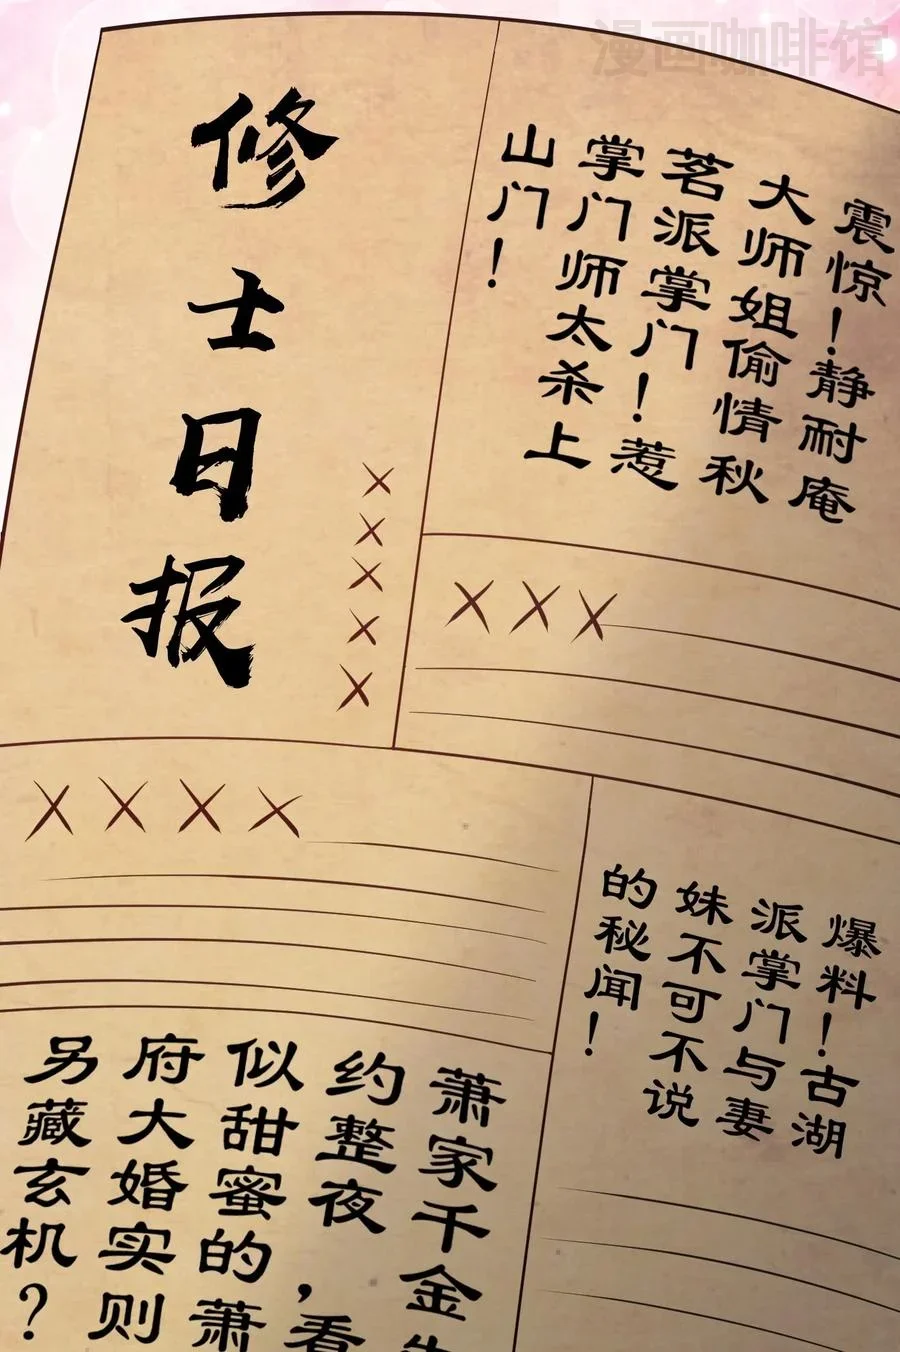 漫画咖啡馆
修士日报
震惊！静耐庵
大师姐偷情秋
茗派掌门！惹
掌门师太杀上
山门！
爆料！古湖
派掌门与妻
妹不可不说
的秘闻！
萧家千金
约整夜，看
似甜蜜的萧
府大婚实则
另藏玄机？